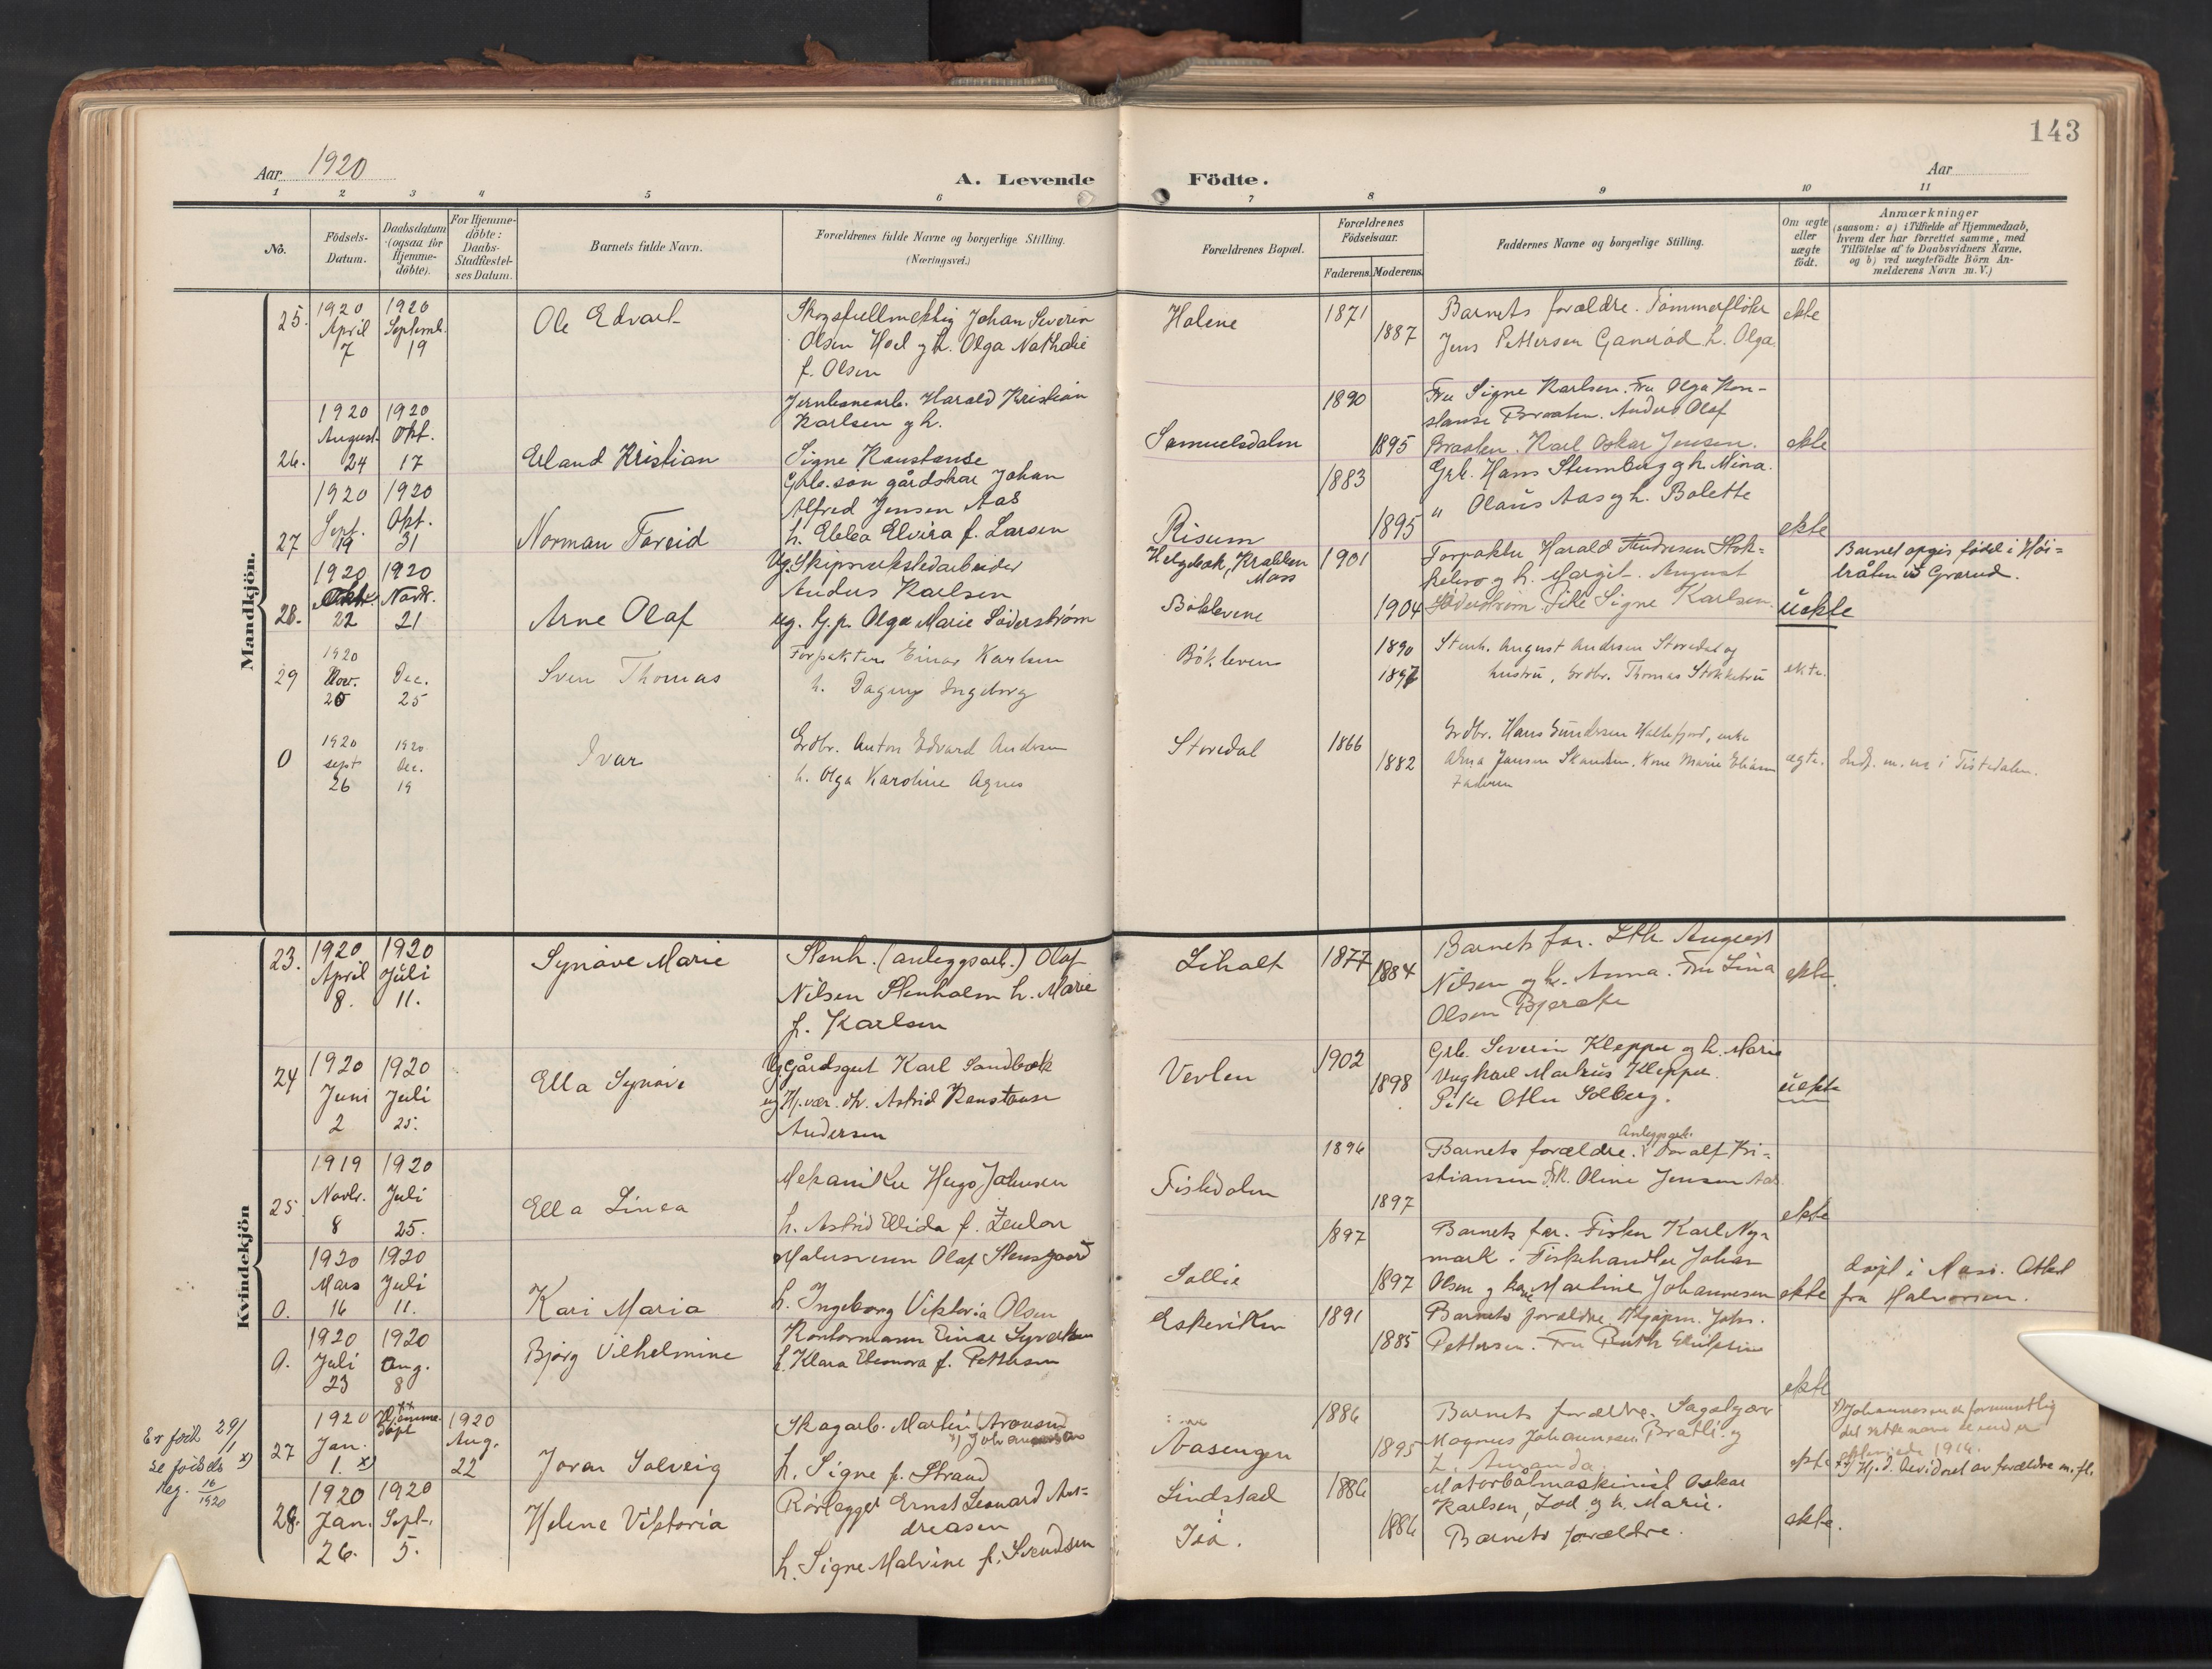 143
Aar 1920
A. Levende Födte.
Aar
1 2 3 4 5 6 7 8 9 10 11
No.
Födsels-Datum.
Daabsdatum (ogsaa for Hjemme-döbte).
For Hjemme-döbte: Daabs-Stadfæstel-ses Datum.
Barnets fulde Navn.
Forældrenes fulde Navne og borgerlige Stilling.
(Næringsvei.)
Forældrenes Bopæl.
Forældrenes Födselsaar.
Faderens. Moderens.
Faddernes Navne og borgerlige Stilling.
Om ægte eller uægte födt.
Anmærkninger
(saasom: a) i Tilfælde af Hjemmedaab,
hvem der har forrettet samme, med
Tilföielse af to Daabsvidners Navne,
og b) ved uægtefödte Börn An-
melderens Navn m. V.)
Mandkjön.
25. 1920 April 7
1920 Septemb. 19
Ole Edvart
Skogsfullmektig Johan Severin
Olsen Hoel og h. Olga Nathalie
f. Olsen
Holene
1871
1887
Barnets forældre. Tömmerfløter
Jens Pettersen Ganerød h. Olga
ekte
26. 1920 August 24
1920 Okt. 17
Erland Kristian
Jernbanearb. Harald Kristian
Karlsen og h.
Signe Konstanse
Samuelsdalen
1890
1895
Fru Signe Karlsen. Fru Olga Kon-
stanse Braaten. Anders Olaf
Braaten. Karl Oskar Jensen.
ekte
27 1920 Sept. 19
1920 Okt. 31
Norman Toreid
Grb. søn gårdskar Johan
Alfred Jensen Aas
h. Ebba Elvira f. Larsen
Risum
1883
1895
Grb. Hans Stumberg og h. Mina.
" Olaus Aas og h. Bolette
ekte
28. 1920 Okt. 22
1920 Novb. 21
Arne Olaf
Ug. Skipsverkstedarbeider
Anders Karlsen
ug. tj.p. Olga Marie Söderstrøm
Helgebæk, Krabben
Moss
Böklevene
1901
1904
Forpakter Harald Andresen Stok-
kebro og h. Margit. August
Söderstrøm. Pike Signe Karlsen.
uekte
Barnet opgis född i Höi-
bråten i Grorud.
29 1920 Nov. 20
Dec. 25
Sven Thomas
Forpakter Einar Karlsen
h. Dagny Ingeborg
Böklevene
1890
1897
Stenh. August Andersen Storedal og
hustru, Grdbr. Thomas Stokkebru
ekte.
0 1920 sept 26
1920 Dec. 19
Ivar
Grdbr. Anton Edvard Andersen
h. Olga Karoline Agnes
Storedal
1866
1882
Grdbr. Hans Gundersen
Jansen Skanden. Kone Marie
Faderen
ægte.
Indf. m. nr i Tistedalen.
Kvindekjön
23. 1920 April 8.
1920 Juli 11.
Synøve Marie
Stenh. (anleggsarb.) Olaf
Nilsen Stenholm h. Marie
f. Karlsen
Liholt
1877
1884
Barnets for. Sth. August
Nilsen og h. Anna. Fru Lina
Olsen Bjerake
ekte.
24 1920 Juni 2
1920 Juli 25.
Ella Synøve
Ug. Gårdsgut Karl Sandbæk
ug Hj.vær. dtr. Astrid Konstanse
Andersen
Vevlen
1902
1898
Grb. Severin Kleppe og h. Marie
Ungkarl Markus Kleppe.
Pike Otlu Solberg.
uekte
25 1919 Novb. 8
1920 Juli 25.
Ella Linea
Mekaniker Hugo Johnsen
h. Astrid Ellida f. Zeulon
Tistedalen
1896
1897
Anleggsarb.
Barnets forældre. Toralf Kri-
stiansen Frk. Oline Jensen Aas
ekte
0. 1920 Mars 16
1920 Juli 11.
Kari Maria
Malersvenn Olaf Stensgaard
h. Ingeborg Viktoria Olsen
Sollie
1897
1897
Barnets for. Fisker Karl Ny-
mark. Fiskehandler Johan
Olsen og kone Martine Johannesen
ekte
døpt i Moss. Attest
fra Halvorsen.
0. 1920 Juli 23
1920 Aug. 8
Bjørg Vilhelmine
Kontormann Einar Syvertsen
h. Klara Eleonora f. Pettersen
Eskeviken
1891
1885
Barnets forældre. Kjøpm. Johs.
Pettersen. Fru Ruth
ekte
Er född 29/1
se fødsels x)
reg. 16/1920
27 1920 Jan. 1. x)
xx Hjemme-döpt
1920 Aug. 22
Joran Solveig
Skogarb. Martin Aronsen
x) Johannessen
h. Signe f. Strand
Aasengen
1886
1895
Barnets forældre. Sagslyer
Magnus Johannesen Bratli og
h. Amanda.
ekte
x) Johannesen er formentlig
det rette navn
1914.
xx) Hj.d. bevidnet av forældre m. fl.
28. 1920 Jan. 26.
1920 Sept. 5.
Helene Viktoria
Rörlegger Ernst Leonard An-
dreasen
h. Signe Malvine f. Svendsen
Lindstad
Isö.
1886
1886
Motorbåtmaskinist Oskar
Karlsen, Lod. og h. Marie.
Barnets forældre.
ekte.